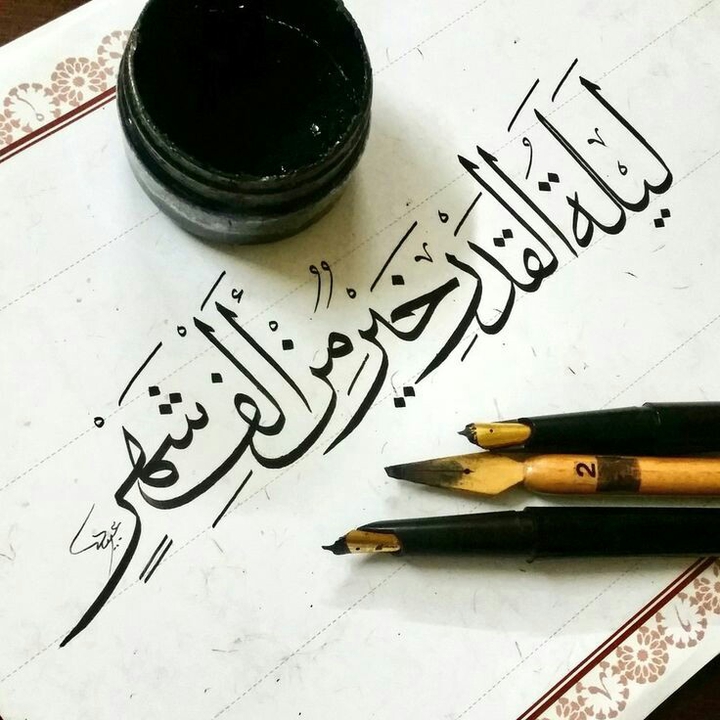 لَيْلَةُ الْقَدْرِ خَيْرٌ مِّنْ أَلْفِ شَهْرٍ
2